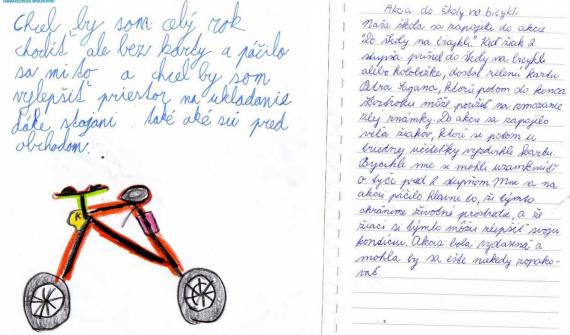 Chcel by som celý rok
chodiť ale bez kardy a páčilo
sa mi to a chcel by som
vylepšiť priestor na ukladanie
ďake stojani také aké sú pred
obchodom.
K
Akcia do školy na bicykli.
Naša škola sa zapojila do akcie
"Do školy na bicykli." Keď žiak 2.
stupňa prišiel do školy na bicykli
alebo kolobežke, dostal zelenú kartu
Petra Sagana, ktorú potom do konca
štvrťroku môže použiť na zmazanie
zlej známky. Do akcie sa zapojilo
veľa žiakov, ktorí si potom u
triednej učiteľky vyzdvihli kartu.
Bycikle sme si mohli uzamknúť
o tyče pred 2. stupňom. Mne sa na
akcii páčilo hlavne to, že týmto
chránime životné prostredie, a že
žiaci si týmto môžu zlepšiť svoju
kondíciu. Akcia bola vydarená a
mohla by sa ešte niekedy zopako-
vať.